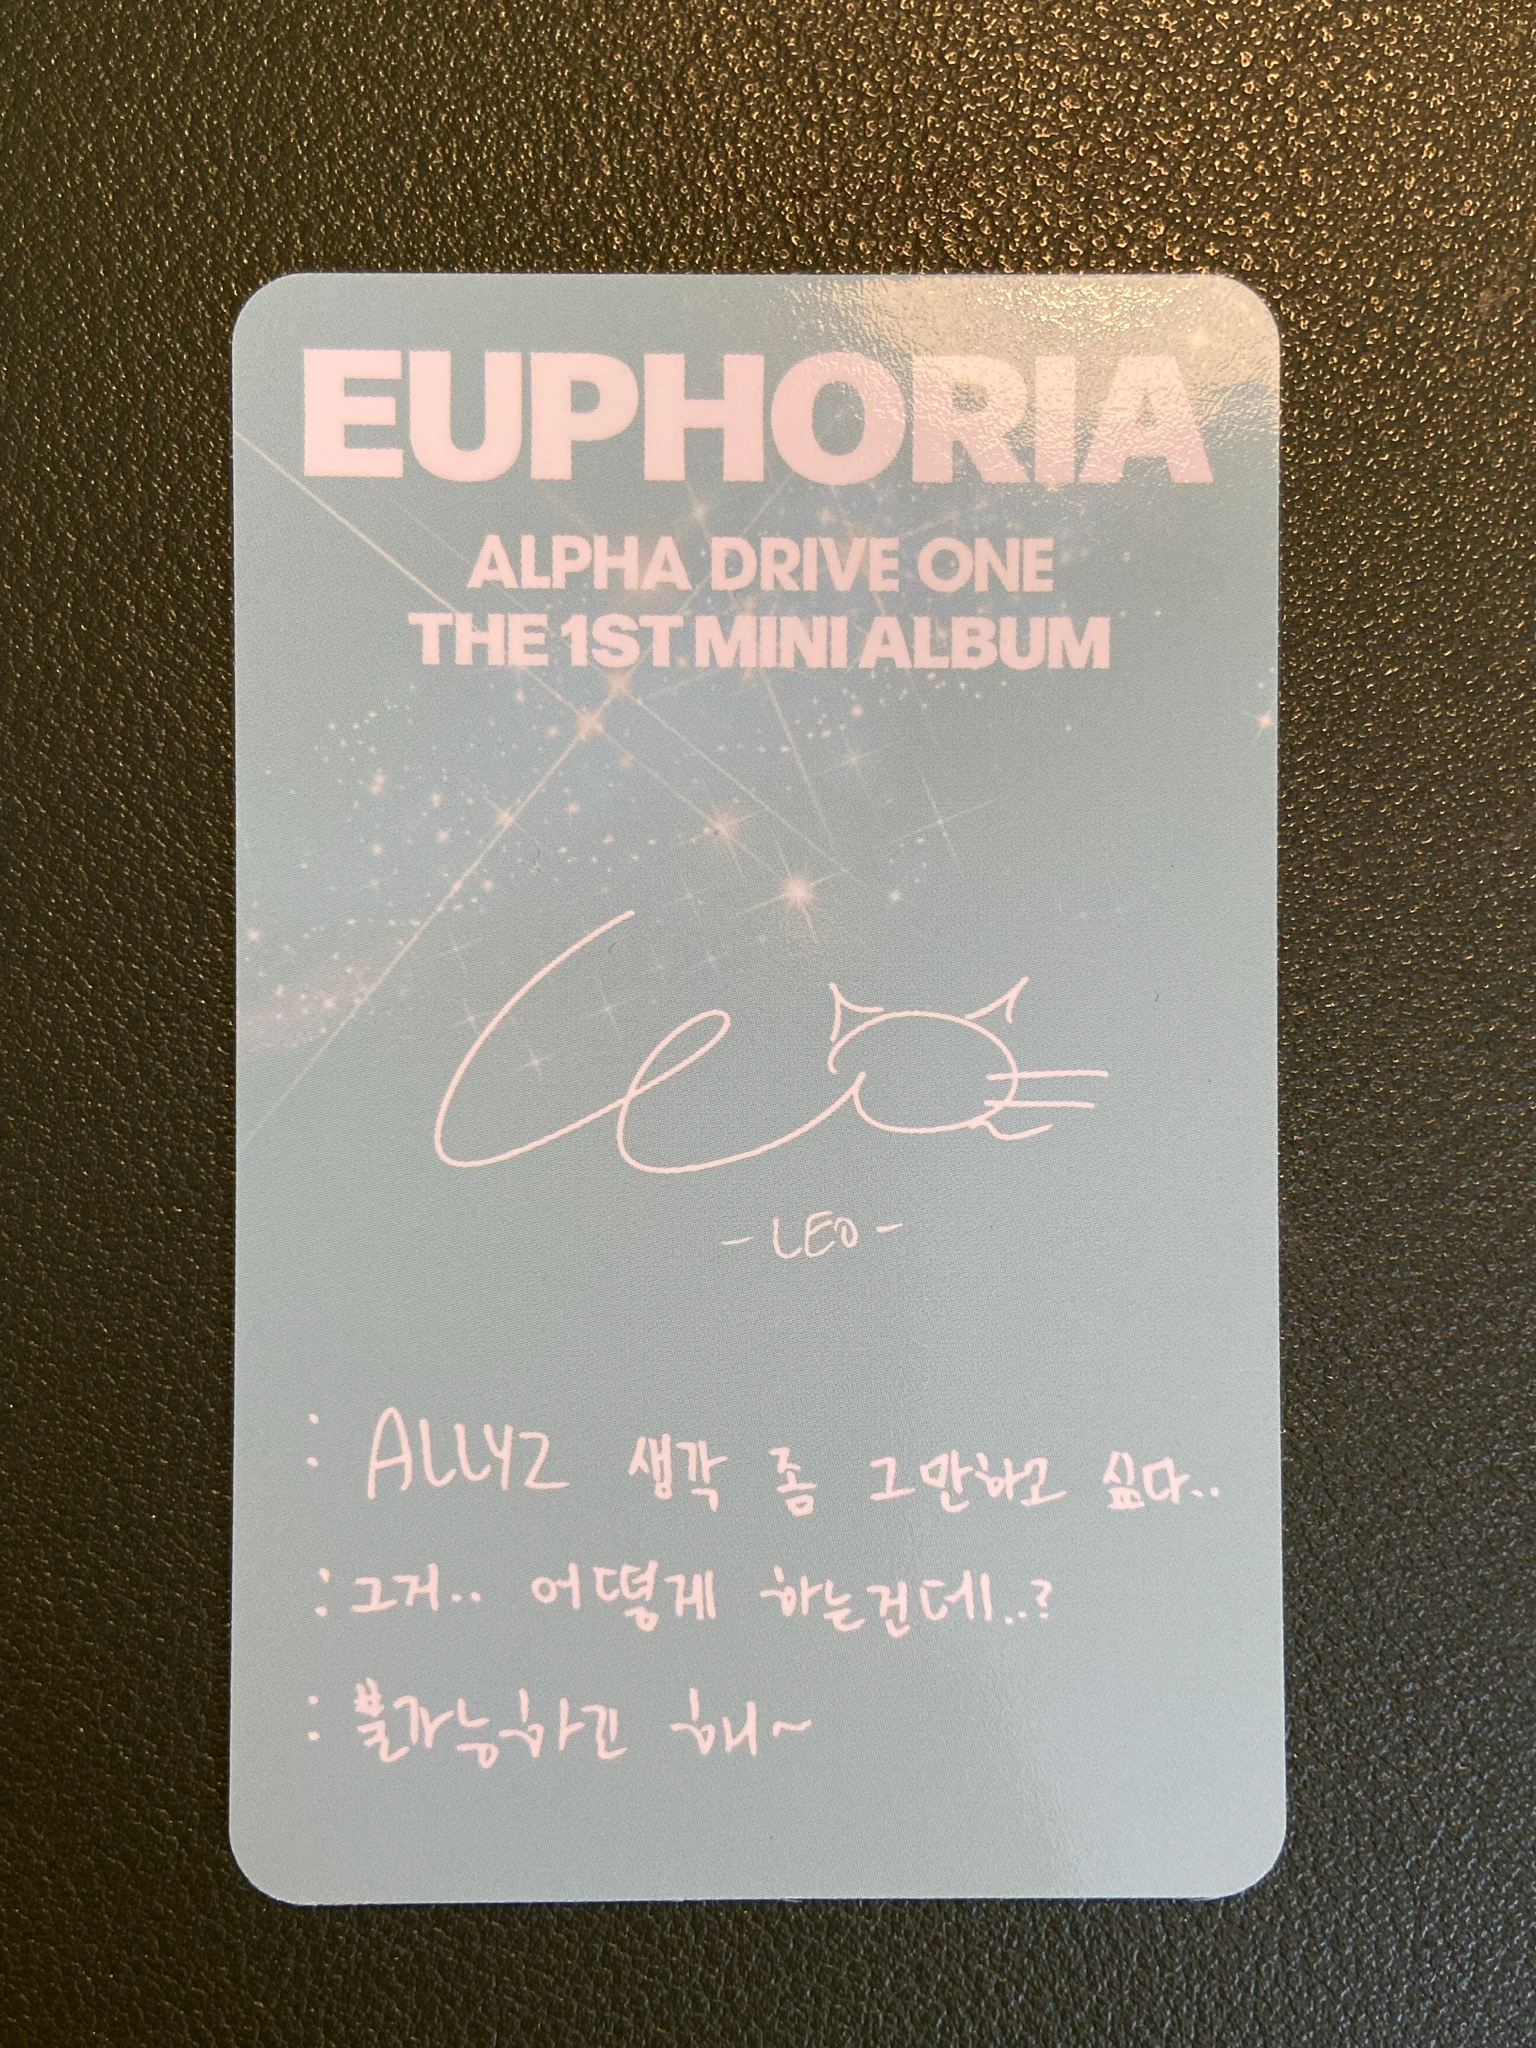 EUPHORIA
ALPHA DRIVE ONE
THE 1ST MINI ALBUM
Leo
- LEO -
: ALLYZ 생각 좀 그만하고 싶다..
: 그거.. 어떻게 하는건데..?
: 불가능하긴 해~